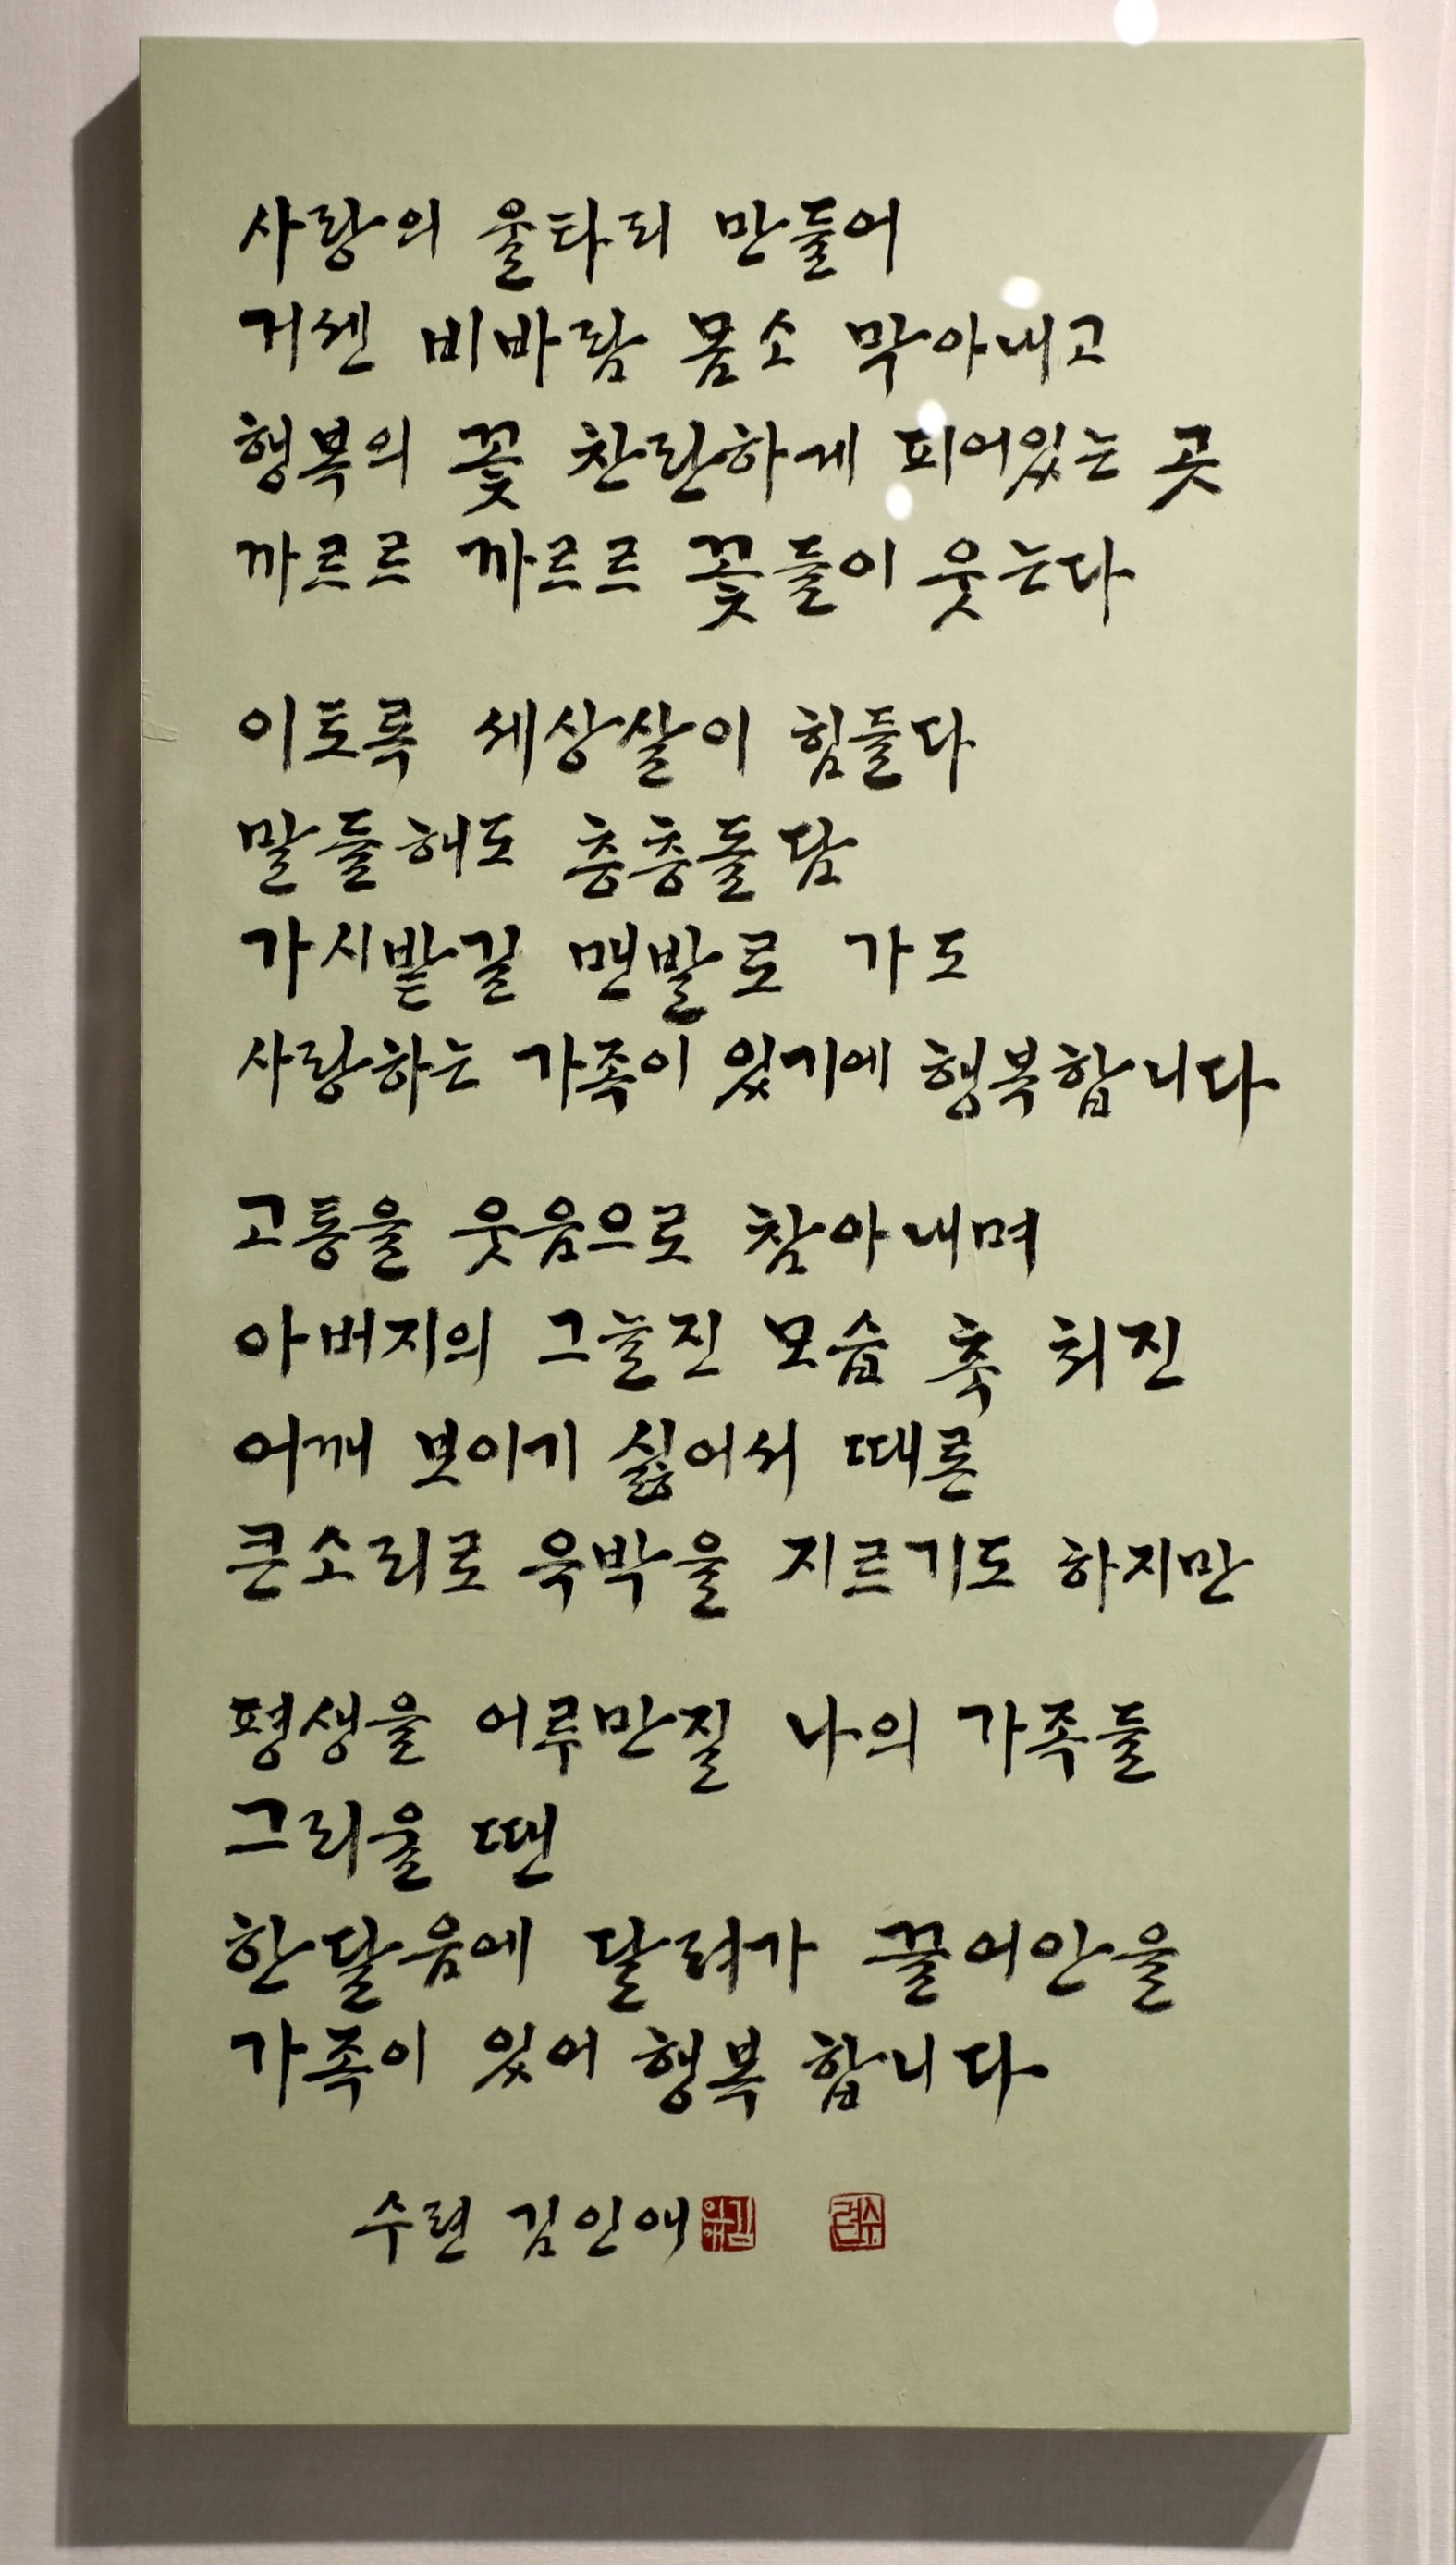 사랑의 울타리 만들어
거센 비바람 몸소 막아내고
행복의 꽃 찬란하게 피어있는 곳
까르르 까르르 꽃들이 웃는다
이토록 세상살이 힘들다
말들해도 층층돌담
가시밭길 맨발로 가도
사랑하는 가족이 있기에 행복합니다
고통을 웃음으로 참아내며
아버지의 그늘진 모습 축 쳐진
어깨 보이기 싫어서 때론
큰소리로 윽박을 지르기도 하지만
평생을 어루만질 나의 가족들
그리울 땐
한달음에 달려가 끌어안을
가족이 있어 행복합니다
수련 김인애 김인애 수련